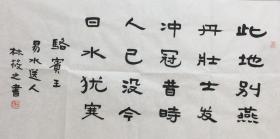 此地别燕
丹壮士发
冲冠昔時
人已没今
日水犹寒
駱賓王
易水送人
林筱之書